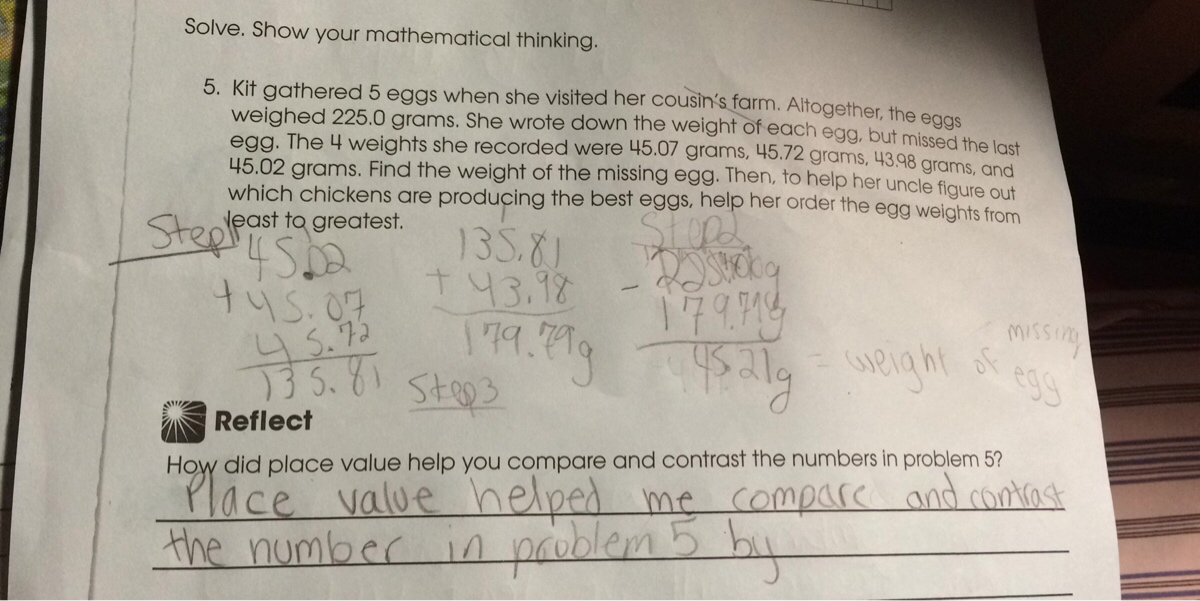 Solve. Show your mathematical thinking.
5. Kit gathered 5 eggs when she visited her cousin's farm. Altogether, the eggs
weighed 225.0 grams. She wrote down the weight of each egg, but missed the last
egg. The 4 weights she recorded were 45.07 grams, 45.72 grams, 43.98 grams, and
45.02 grams. Find the weight of the missing egg. Then, to help her uncle figure out
which chickens are producing the best eggs, help her order the egg weights from
least to greatest.
Step 1
45.02
+ 45.07
45.72
135.81
135.81
+ 43.98
179.79g
Step 2
-
45.21g = weight of missing egg
Step 3
Reflect
How did place value help you compare and contrast the numbers in problem 5?
Place value helped me compare and contrast
the number in problem 5 by